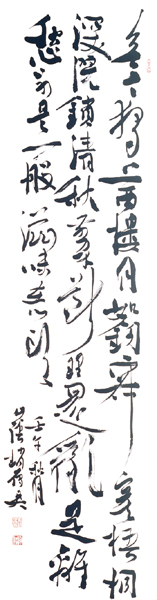 無言獨上西樓月如鉤寂寞梧桐
深院鎖清秋剪不斷理還亂是離
愁別是一般滋味在心頭
壬午秋月